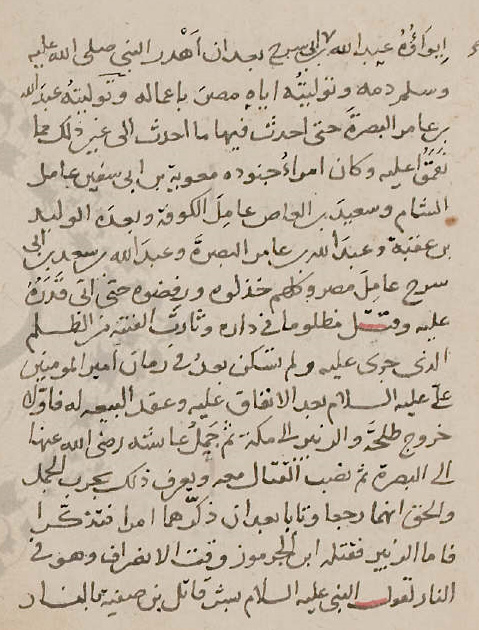 ايواؤه عبد الله بن ابى سرح بعد ان اهدر النبى صلى الله عليه
وسلم دمه وتوليته اياه مصر باعماله وتوليته عبد الله
بن عامر البصرة حتى احدث فيها ما احدث الى غير ذلك مما
نقموا عليه وكان امراء جنوده معوية بن ابى سفين عامل
الشام وسعيد بن العاص عامل الكوفة وبعده الوليد
بن عقبة وعبد الله بن عامر البصرة وعبد الله بن سعد بن ابى
سرح عامل مصر وكلهم خذلوه ورفضوه حتى اتى قدره
عليه وقتل مظلوما فى داره وثارت الفتنة من الظلم
الذى جرى عليه ولم تسكن بعد فى زمان امير المومنين
على عليه السلام بعد الاتفاق عليه وعقد البيعه له فاوله
خروج طلحة والزبير الى مكة ثم حمل عائشه رضى الله عنها
الى البصرة ثم نصب القتال معه ويعرف ذلك بحرب الجمل
والحق انهما رجعا وتابا بعد ان ذكرهما امرا فتذكرا
فاما الزبير فقتله ابن الجرموز وقت الانصراف وهو فى
النار لقول النبى عليه السلام بشر قاتل بن صفية بالنار